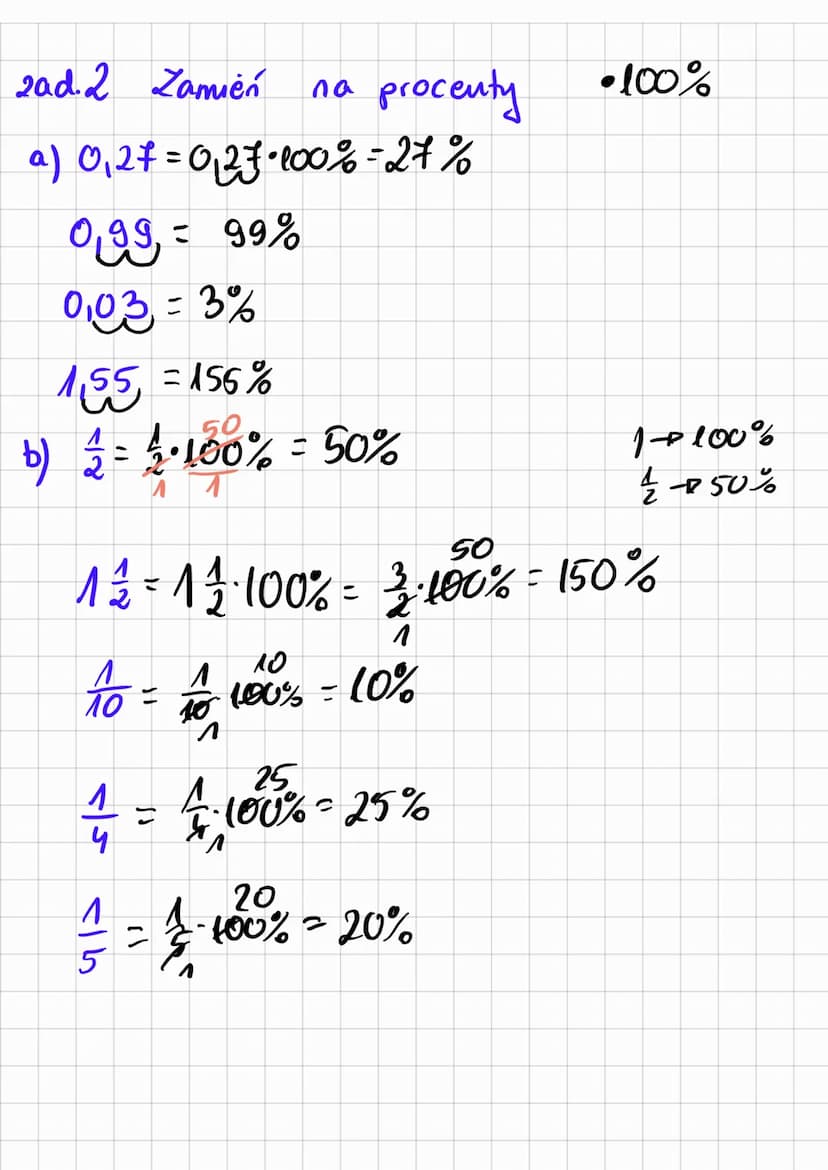 zad.2 Zamień na procenty •100%
a) 0,27 = 0,27•100% = 27%
0,99 = 99%
0,03 = 3%
1,55 = 156%
b) 1/2 = 1/2 1 • 100 50/1 % = 50%
1 → 100%
1/2 → 50%
1 1/2 = 1 1/2 • 100% = 3/2 1 • 100 50 % = 150%
1/10 = 1/10 1 100 10 % = 10%
1/4 = 1/4 1 • 100 25 % = 25%
1/5 = 1/5 1 • 100 20 % = 20%